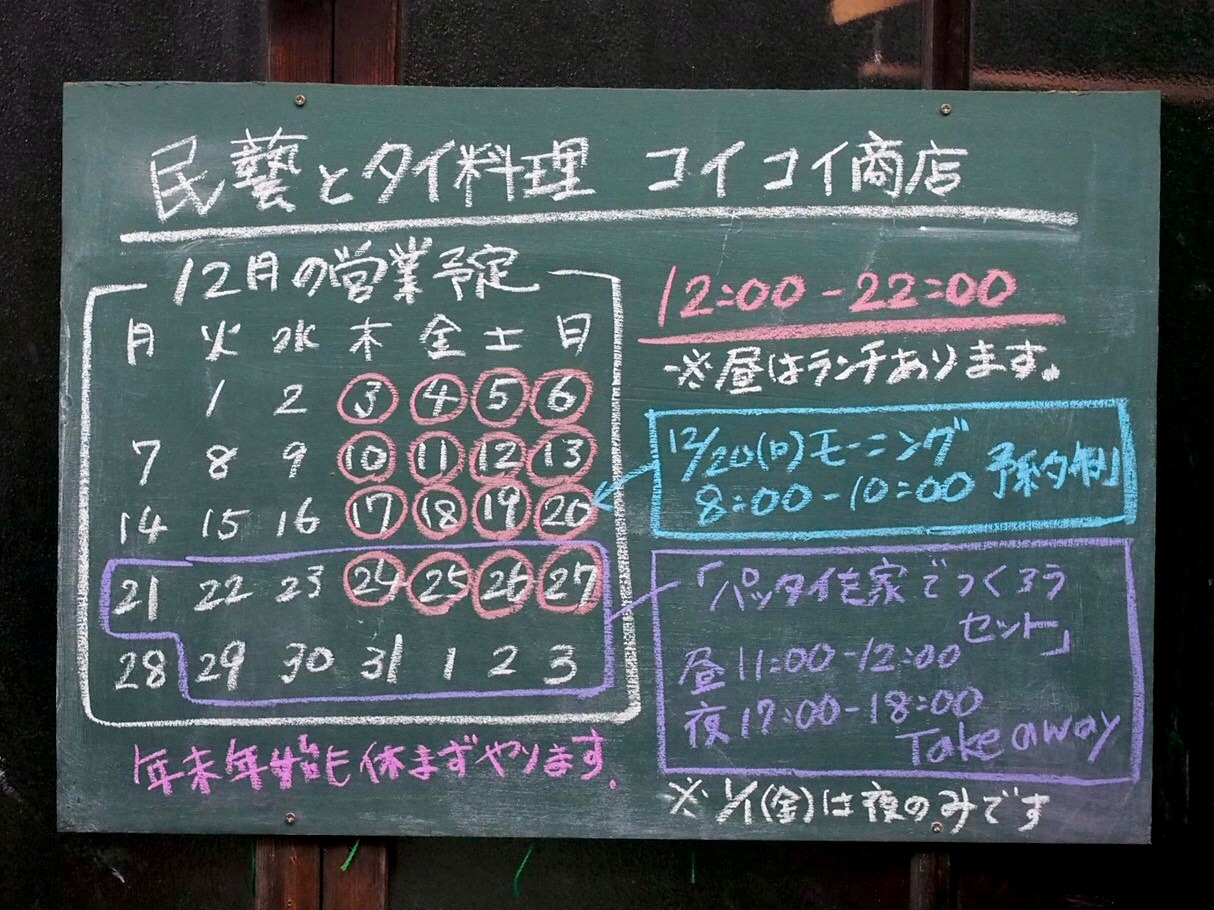 民藝とタイ料理 コイコイ商店
12月の営業予定
月 火 水 木 金 土 日
1 2 3 4 5 6
7 8 9 10 11 12 13
14 15 16 17 18 19 20
21 22 23 24 25 26 27
28 29 30 31 1 2 3
年末年始も休まずやります.
12:00-22:00
※昼はランチあります。
12/20(日)モーニング
8:00-10:00 予約制
「パッタイを家でつくろう
セット」
昼11:00-12:00
夜17:00-18:00
Take away
※1/1(金)は夜のみです